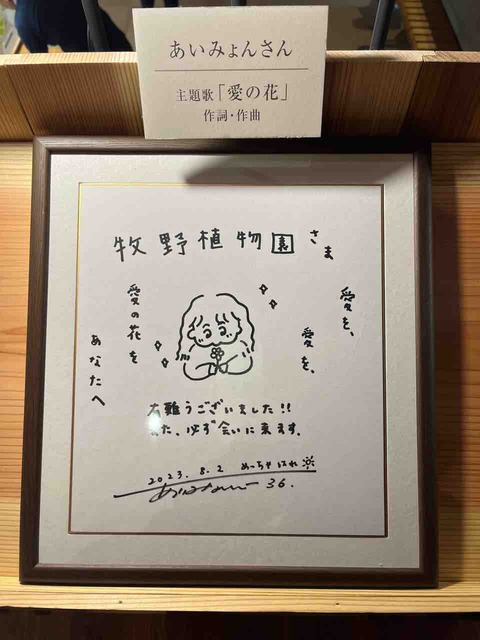 あいみょんさん
主題歌「愛の花」
作詞・作曲
牧野植物園さま
愛を、
愛を、
愛の花を
あなたへ
有難うございました!!
また、必ず会いに来ます。
2023.8.2 めっちゃはれ
36.